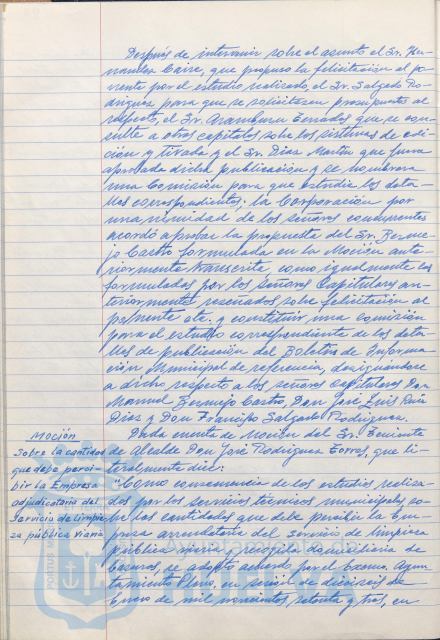 Después de intervenir sobre el asunto el Sr. Her-
nandez Caire, que propuso la felicitación al po-
nente por el estudio realizado, el Sr. Salgado Ro-
driguez para que se solicitasen presupuestos al
respecto, el Sr. Aramburu Terrados que se con-
sulte a otras capitales sobre los sistemas de edi-
ción y tirada y el Sr. Diaz Martin que fuera
aprobada dicha publicación y se nombrara
una Comisión para que estudie los deta-
lles correspondientes; la Corporación por
unanimidad de los señores concurrentes
acordó aprobar la propuesta del Sr. Berme-
jo Castro formulada en la Moción ante
riormente transcrita, como igualmente las
formuladas por los señores Capitulares an-
teriormente reseñados sobre felicitación al
ponente etc. y constituir una comisión
para el estudio correspondiente de los deta-
lles de publicación del Boletin de Informa
ción Municipal de referencia, designándose
a dicho respecto a los señores Capitulares Don
Manuel Bermejo Castro, Don José Luis Ruiz
Diaz y Don Francisco Salgado Rodriguez.
Moción
Sobre la cantidad
que debe perci-
bir la Empresa
adjudicataria del
Servicio de limpie-
za pública viaria
Dada cuenta de Moción del Sr. Teniente
de Alcalde Don José Rodriguez Torres, que li-
teralmente dice:
"Como consecuencia de los estudios realiza-
dos por los servicios técnicos municipales, so-
bre las cantidades que debe percibir la Em-
presa arrendataria del servicio de limpieza
pública viaria y recogida domiciliaria de
basuras, se adoptó acuerdo por el Excmo. Ayun
tamiento Pleno, en sesión de dieciseis de
Enero de mil novecientos setenta y tres, en